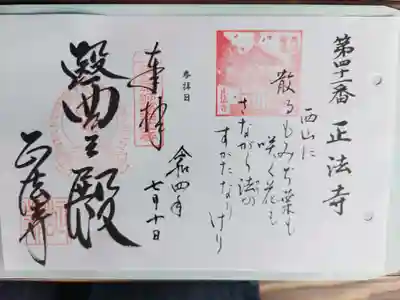 第四十一番 正法寺
西山に
散るもみぢ葉も
咲く花も
さながら法の
すがたなりけり
参拝日
令四年
七月十日
奉拝
醫王殿
正法寺